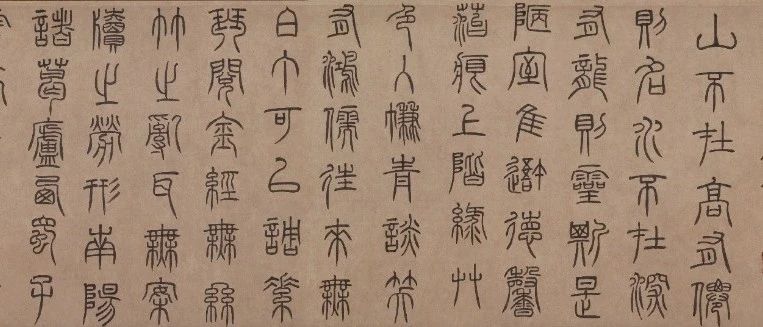 山不在高有僊
則名水不在深
有龍則靈斯是
陋室隹吾德馨
菭痕上階綠艸
色入簾青談笑
有鴻儒往來無
白丁可以調素
琴閱金經無絲
竹之亂耳無案
牘之勞形南陽
諸葛廬西蜀子